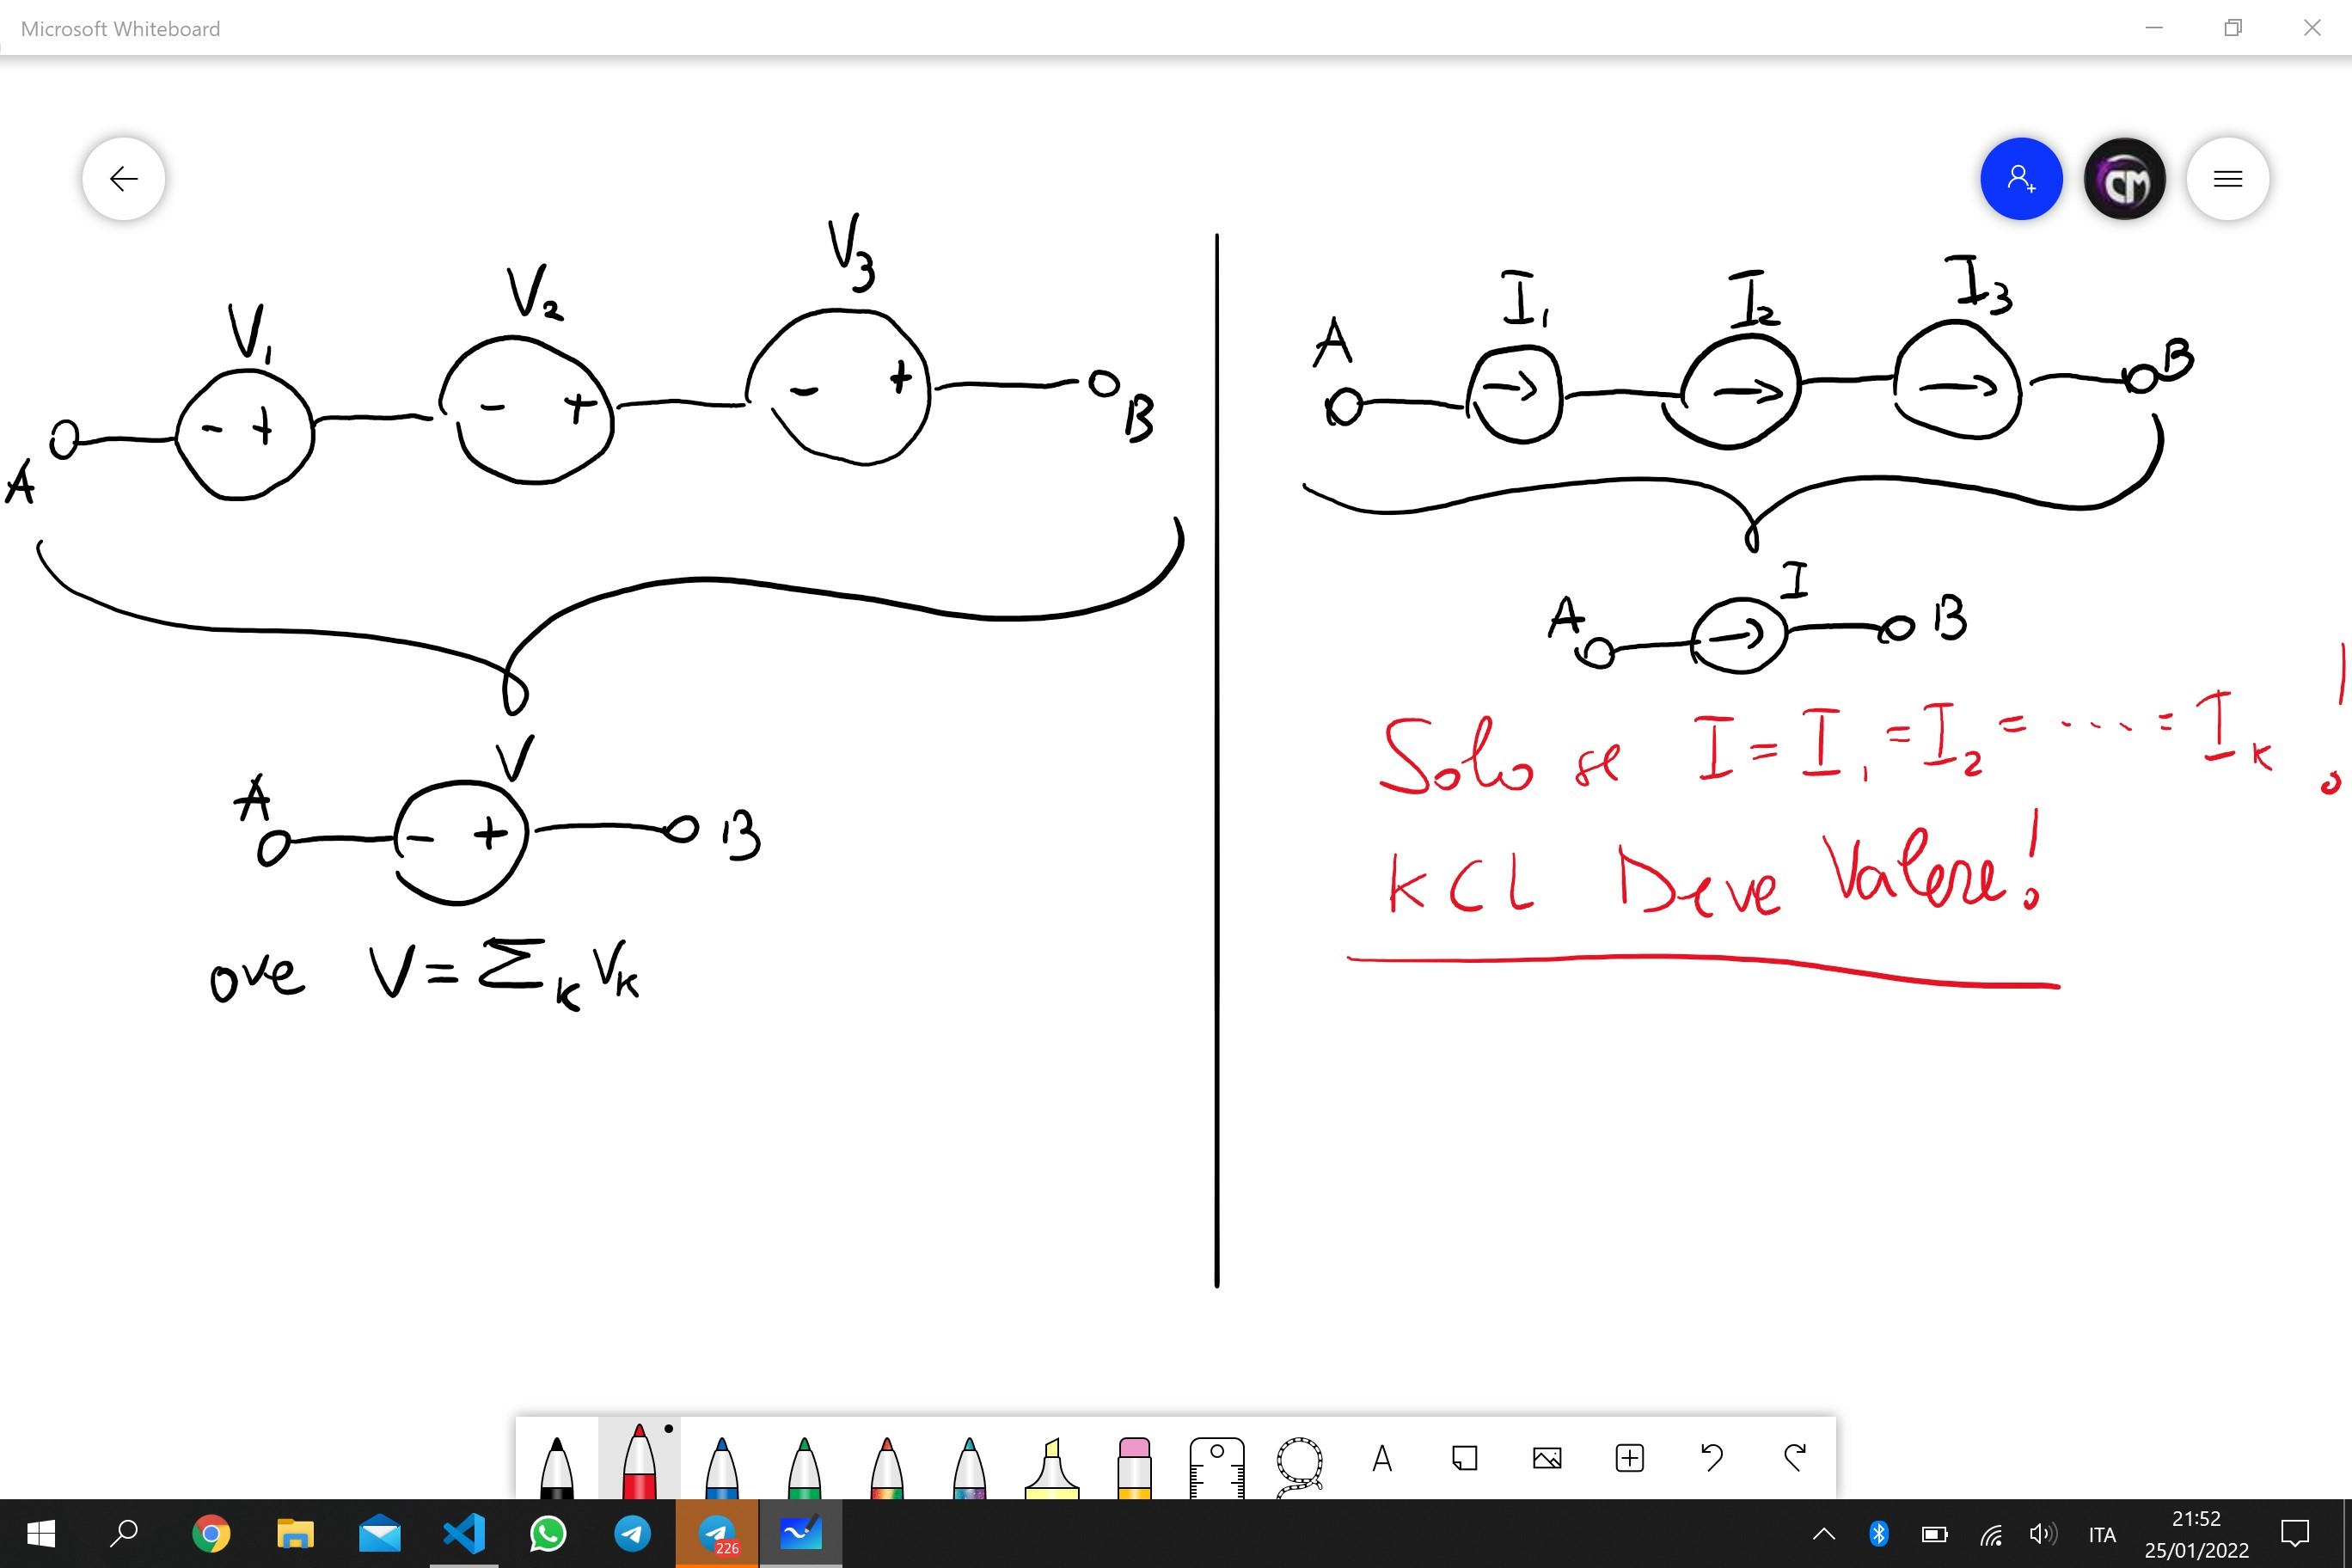 Microsoft Whiteboard
CM
V₁
V₂
V₃
- +
- +
- +
A
B
V
A
- +
B
ove V = Σₖ Vₖ
I₁
I₂
I₃
A
B
I
A
B
Solo se I = I₁ = I₂ = .... = Iₖ !
KCL Deve Valere!
A
226
ITA
21:52
25/01/2022